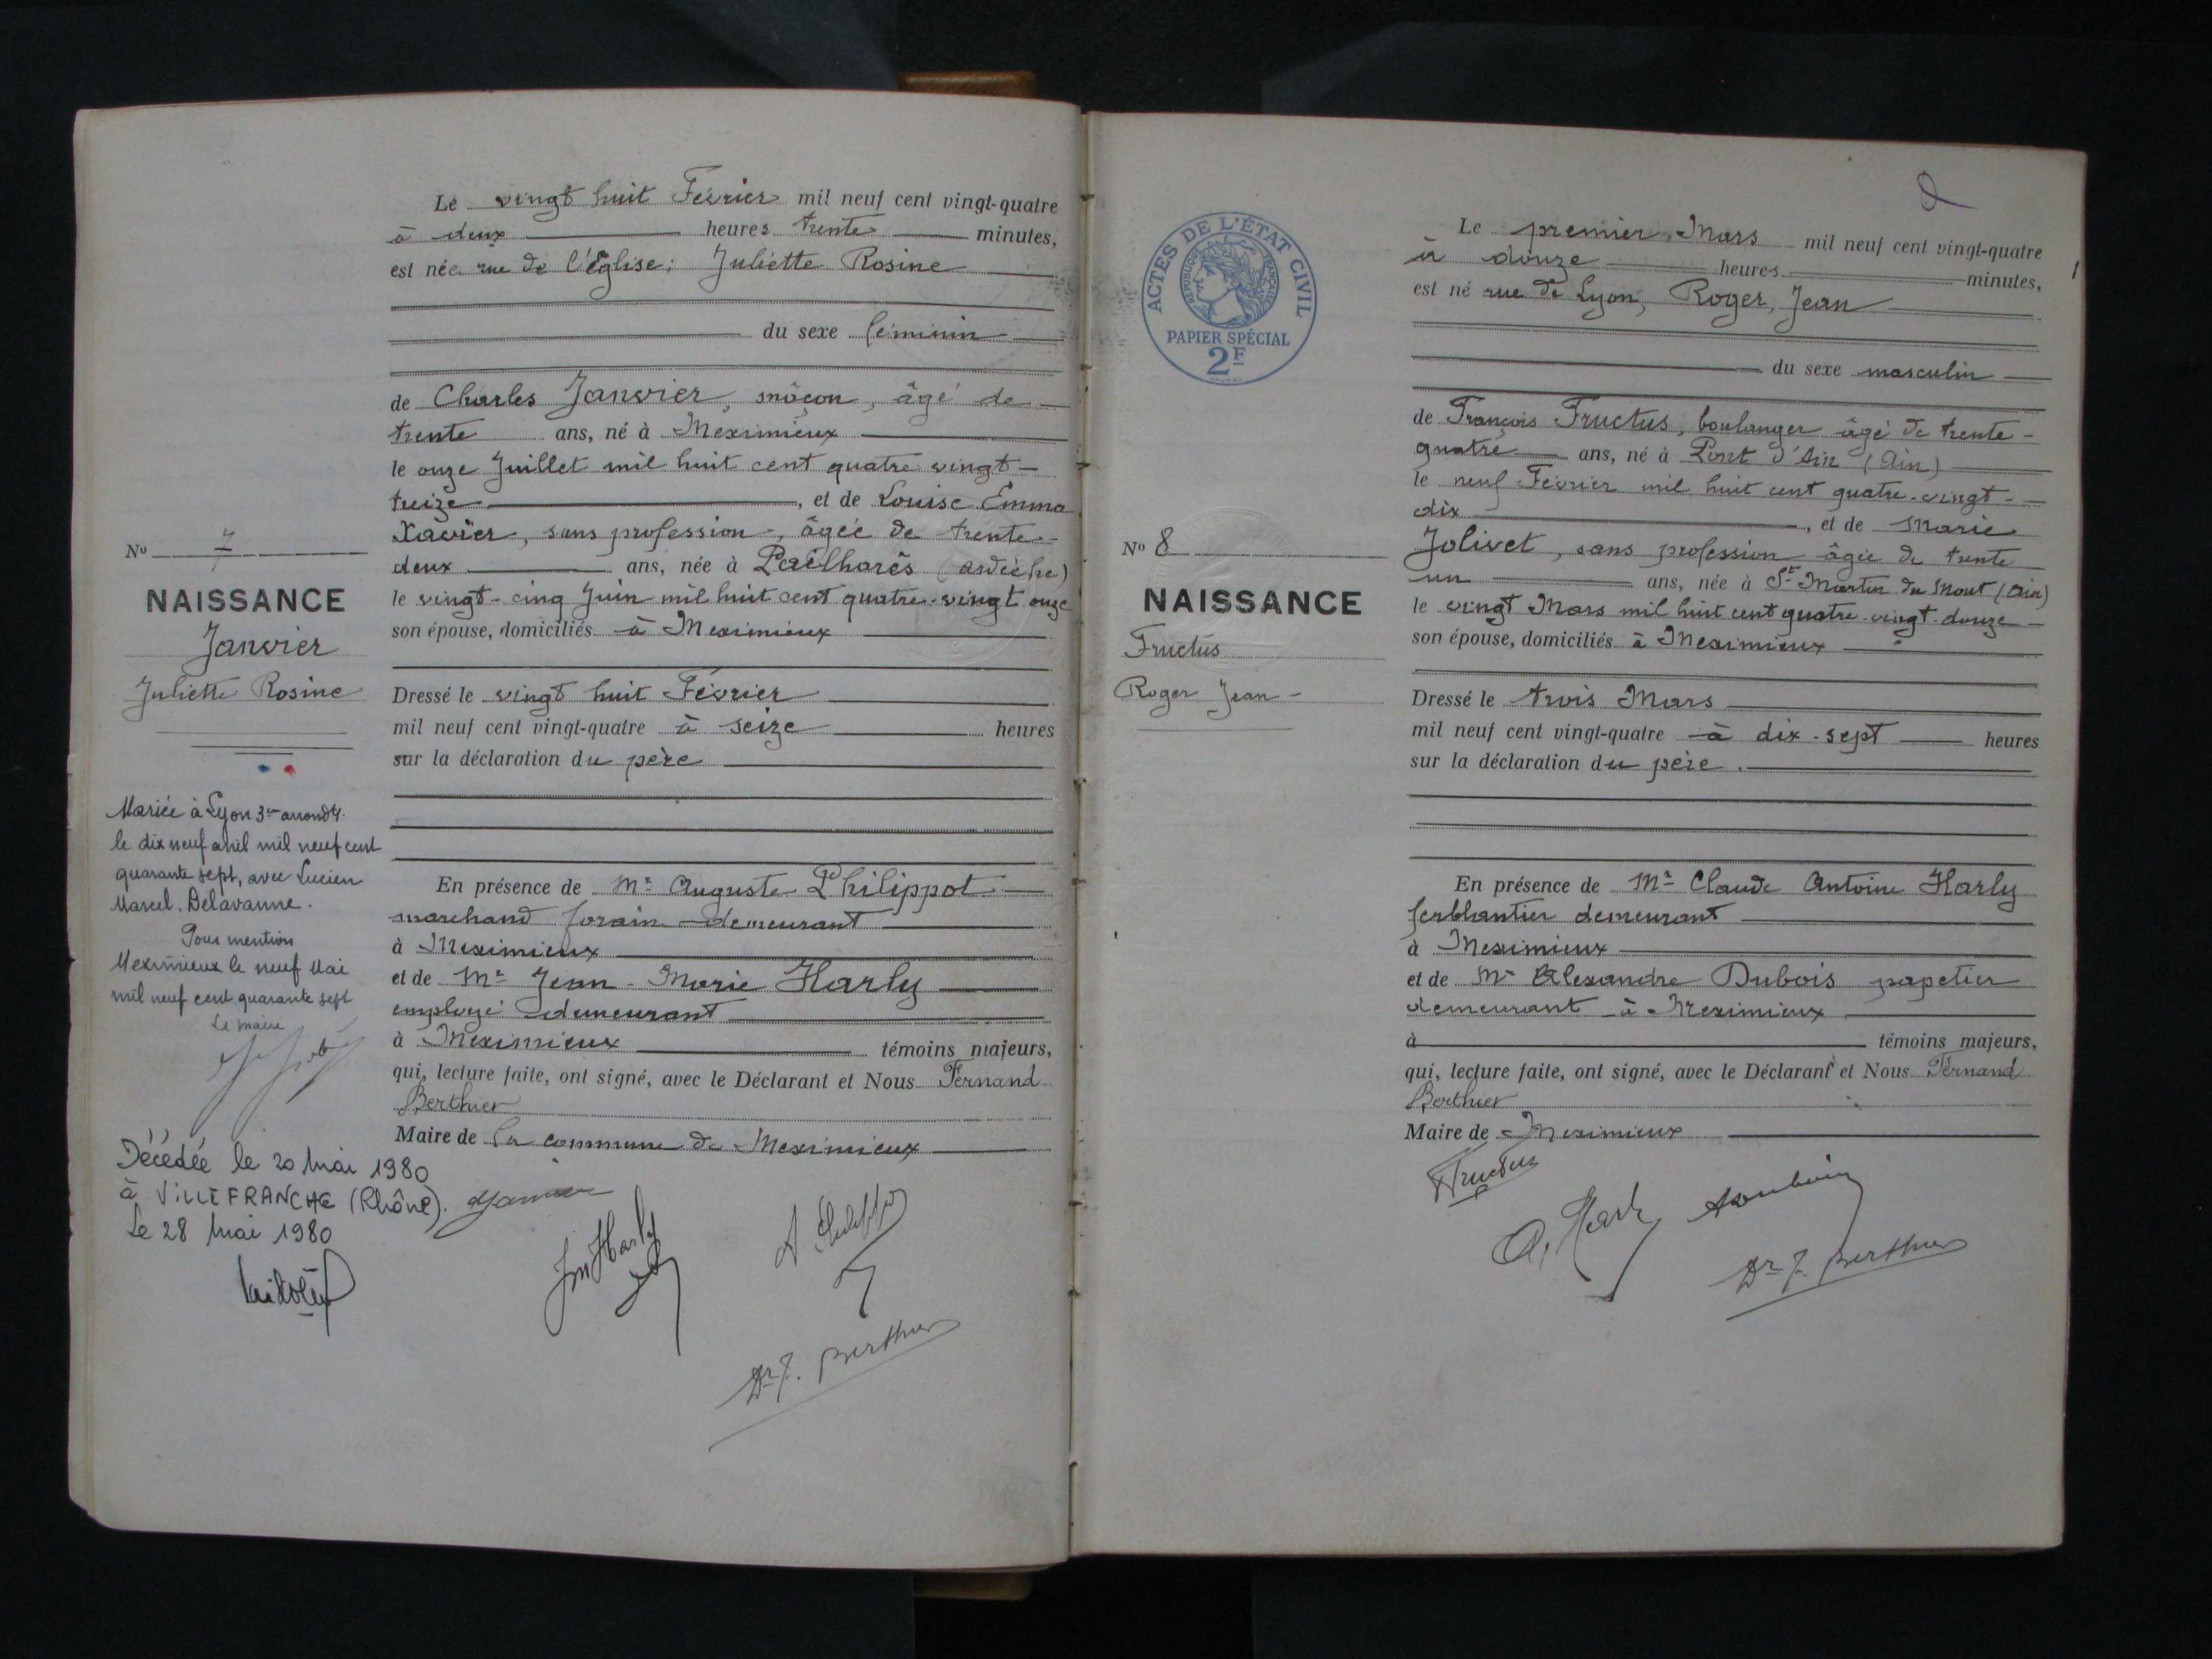 Le vingt huit Février mil neuf cent vingt-quatre
à deux heures trente minutes,
est née rue de l'Église; Juliette Rosine
du sexe féminin
de Charles Janvier, mâçon, âgé de
trente ans, né à Meximieux
le onze Juillet mil huit cent quatre vingt-
treize, et de Louise Emma
Xavier, sans profession, âgée de trente-
deux ans, née à Pailharès (Ardèche)
le vingt-cinq Juin mil huit cent quatre-vingt onze
son épouse, domiciliés à Meximieux
Dressé le vingt huit Février
mil neuf cent vingt-quatre à seize heures
sur la déclaration du père
En présence de Mr Auguste Philippot
marchand forain demeurant
à Meximieux
et de Mr Jean-Marie Harly
employé demeurant
à Meximieux témoins majeurs,
qui, lecture faite, ont signé, avec le Déclarant et Nous Fernand
Berthier
Maire de la commune de Meximieux
No 7
NAISSANCE
Janvier
Juliette Rosine
Mariée à Lyon 3me arrondt
le dix neuf avril mil neuf cent
quarante sept, avec Lucien
Marcel Delavanne.
Pour mention
Meximieux le neuf Mai
mil neuf cent quarante sept
Le maire
Décédée le 20 Mai 1980
à VILLEFRANCHE (Rhône).
Le 28 Mai 1980
Janvier
Jm Harly
A Philippot
Dr F. Berthier
2
ACTES DE L'ÉTAT CIVIL
RÉPUBLIQUE FRANÇAISE
PAPIER SPÉCIAL
2F
No 8
NAISSANCE
Fructus
Roger Jean
Le premier Mars mil neuf cent vingt-quatre
à douze heures minutes,
est né rue de Lyon, Roger, Jean
du sexe masculin
de François Fructus, boulanger âgé de trente-
quatre ans, né à Pont d'Ain (Ain)
le neuf Février mil huit cent quatre-vingt-
dix, et de Marie
Jolivet, sans profession âgée de trente
un ans, née à St Martin du Mont (Ain)
le vingt Mars mil huit cent quatre-vingt-douze
son épouse, domiciliés à Meximieux
Dressé le trois Mars
mil neuf cent vingt-quatre à dix-sept heures
sur la déclaration du père.
En présence de Mr Claude Antoine Harly
ferblantier demeurant
à Meximieux
et de Mr Alexandre Dubois papetier
demeurant à Meximieux
à témoins majeurs,
qui, lecture faite, ont signé, avec le Déclarant et Nous Fernand
Berthier
Maire de Meximieux
Fructus
A. Harly
Dr F. Berthier